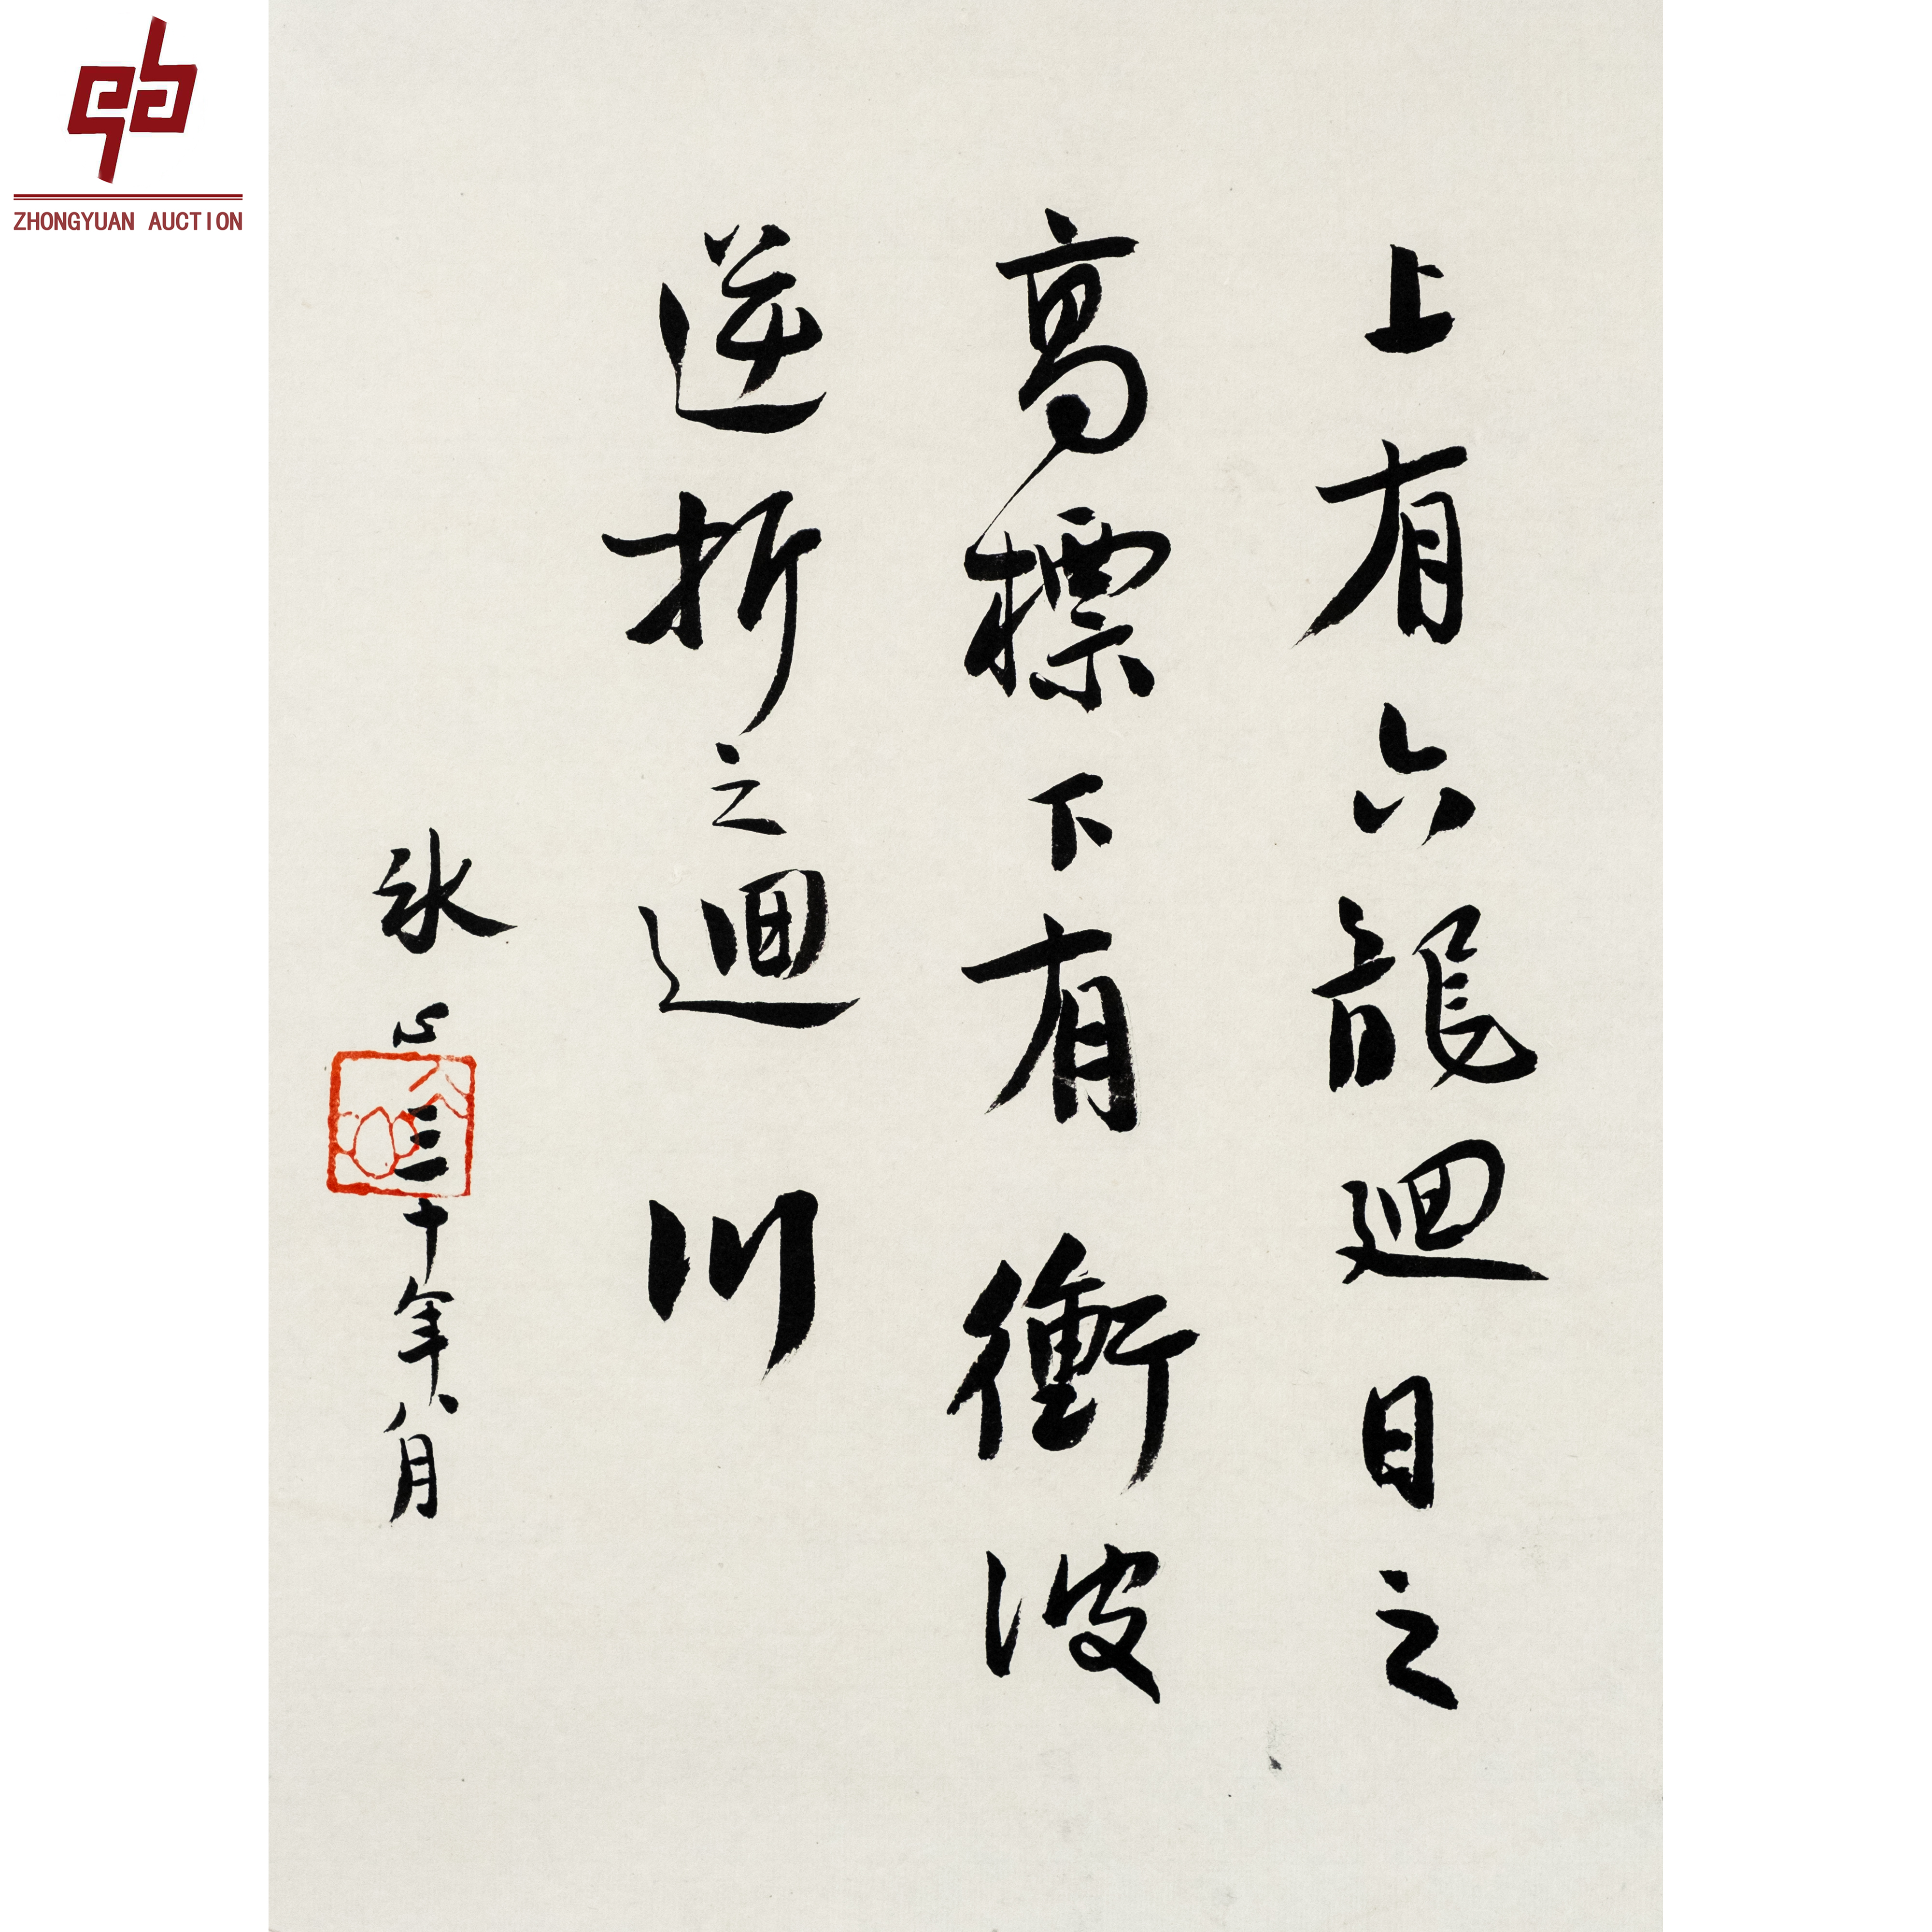 ZHONGYUAN AUCTION
上有六龍廻目之
高標下有衝波
逆折之迴川
冰心三十年八月